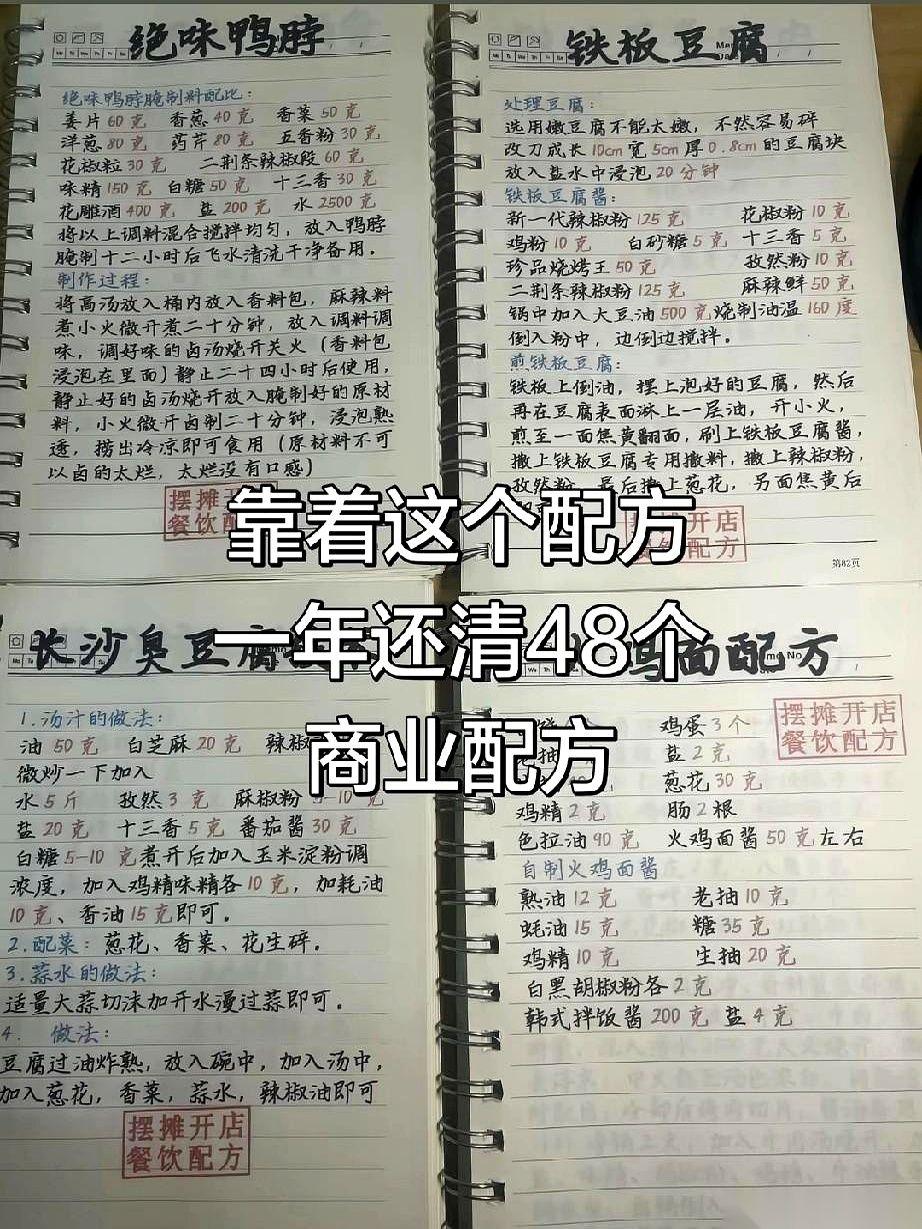 绝味鸭脖
绝味鸭脖腌制料配比：
姜片60克 香葱40克 香菜50克
洋葱80克 药芹80克 五香粉30克
花椒粒30克 二荆条辣椒段60克
味精150克 白糖50克 十三香30克
花雕酒400克 盐200克 水2500克
将以上调料混合搅拌均匀，放入鸭脖
腌制十二小时后飞水清洗干净备用。
制作过程：
将高汤放入桶内放入香料包，麻辣料
煮小火微开煮二十分钟，放入调料调
味，调好味的卤汤烧开关火（香料包
浸泡在里面）静止二十四小时后使用，
静止好的卤汤烧开放入腌制好的原材
料，小火微开卤制二十分钟，浸泡熟
透，捞出冷凉即可食用（原材料不可
以卤的太烂，太烂没有口感）
摆摊开
餐饮配
铁板豆腐
处理豆腐：
选用嫩豆腐不能太嫩，不然容易碎
改刀成长10cm宽5cm厚0.8cm的豆腐块
放入盐水中浸泡20分钟
铁板豆腐酱：
新一代辣椒粉125克 花椒粉10克
鸡粉10克 白砂糖5克 十三香5克
珍品烧烤王50克 孜然粉10克
二荆条辣椒粉125克 麻辣鲜50克
锅中加入大豆油500克烧制油温160度
倒入粉中，边倒边搅拌。
煎铁板豆腐：
铁板上倒油，摆上泡好的豆腐，然后
再在豆腐表面淋上一层油，开小火，
煎至一面焦黄翻面，刷上铁板豆腐酱，
撒上铁板豆腐专用撒料，撒上辣椒粉，
孜然粉，最后撒上葱花，另面焦黄后
摊开店
配方
第82页
靠着这个配方
一年还清48个
商业配方
长沙臭豆腐
1.汤汁的做法：
油50克 白芝麻20克 辣椒
微炒一下加入
水5斤 孜然3克 麻椒粉5-10克
盐20克 十三香5克 番茄酱30克
白糖5-10克煮开后加入玉米淀粉调
浓度，加入鸡精味精各10克，加耗油
10克、香油15克即可。
2.配菜：葱花、香菜、花生碎。
3.蒜水的做法：
适量大蒜切沫加开水漫过蒜即可。
4. 做法：
豆腐过油炸熟，放入碗中，加入汤中，
加入葱花，香菜，蒜水，辣椒油即可
摆摊开店
餐饮配方
鸡面配方
鸡蛋3个
盐2克
葱花30克
鸡精2克 肠2根
色拉油90克 火鸡面酱50克左右
自制火鸡面酱
熟油12克 老抽10克
蚝油15克 糖35克
鸡精10克 生抽20克
白黑胡椒粉各2克
韩式拌饭酱200克 盐4克
摆摊开店
餐饮配方